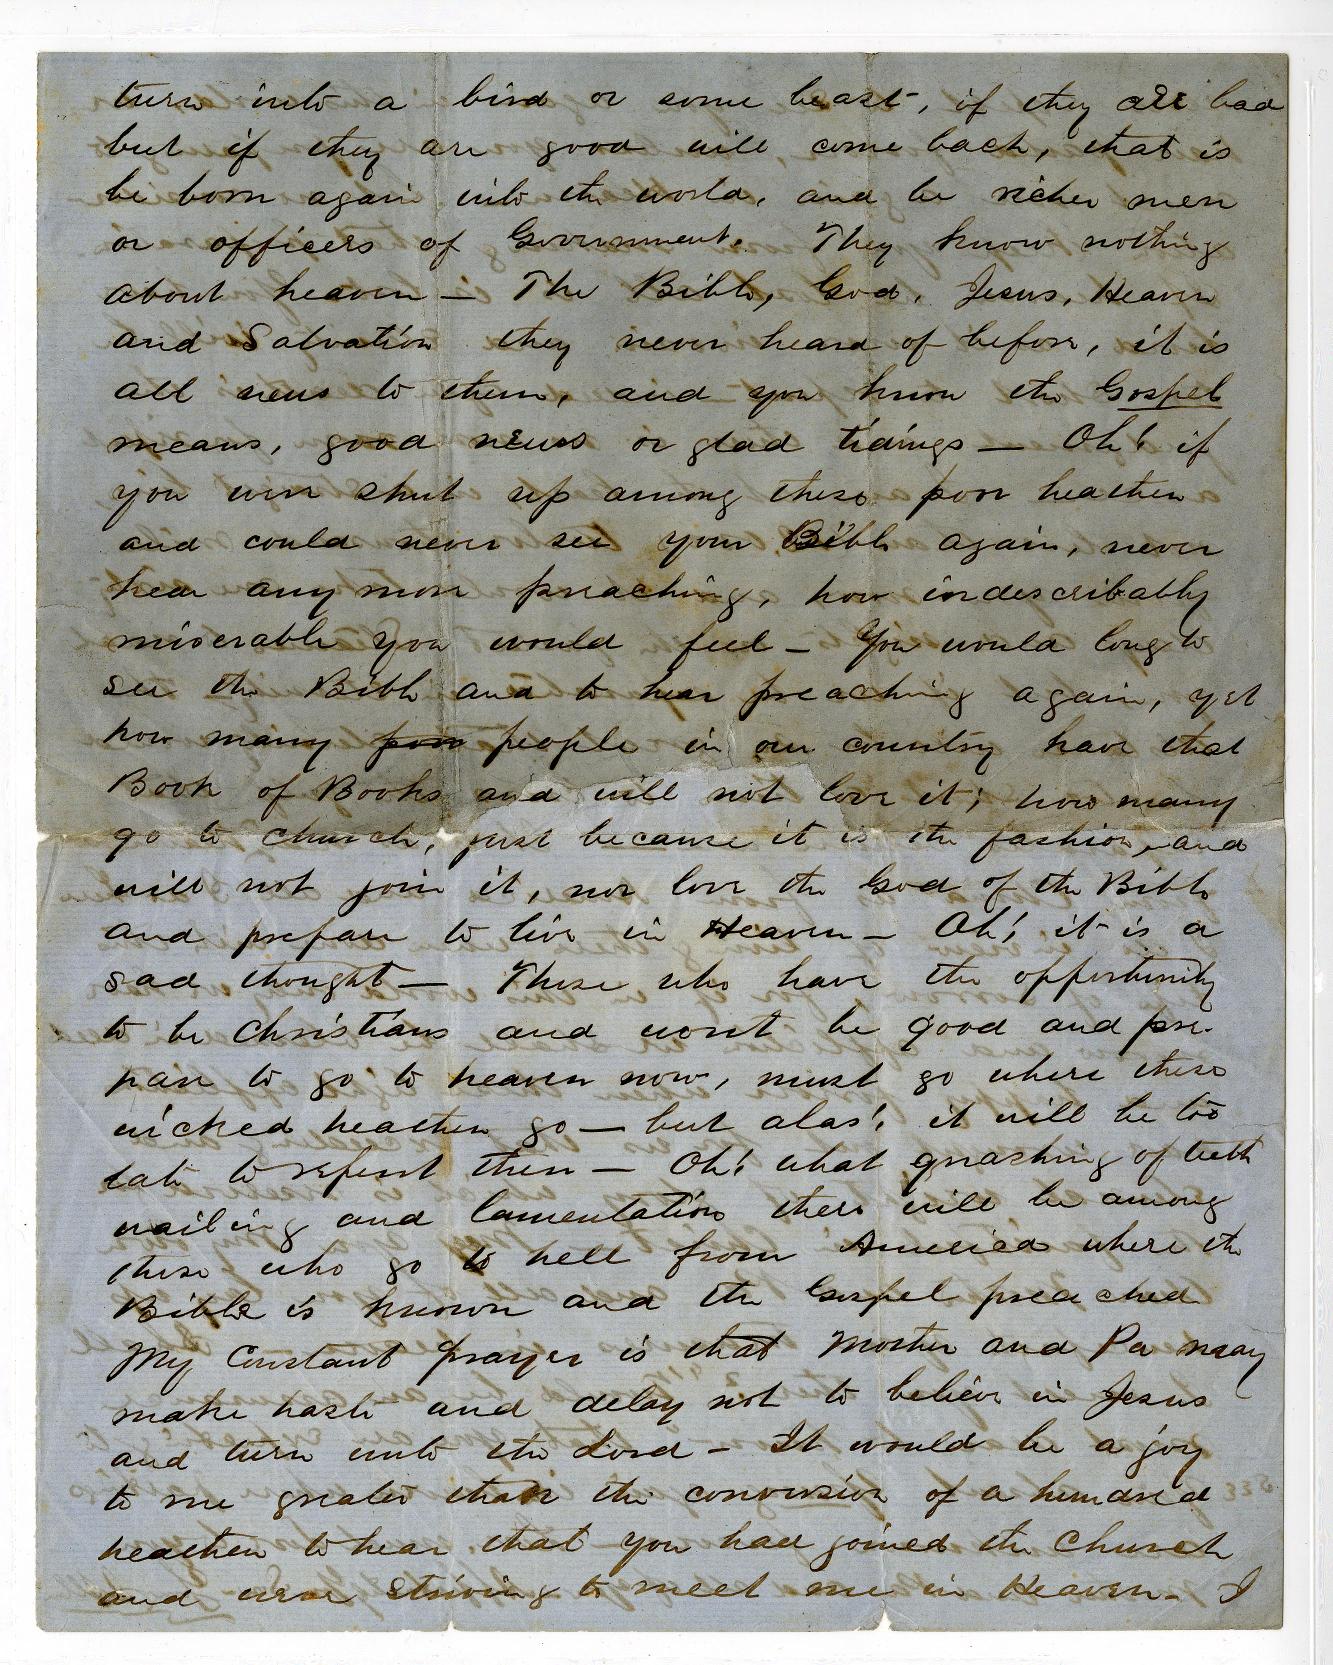 turn into a bird or some beast, if they are bad
but if they are good will come back, that is
be born again into the world, and be richer men
or officers of Government. They know nothing
about heaven — The Bible, God, Jesus, Heaven
and Salvation they never heard of before, it is
all news to them, and you know the Gospel
means, good news or glad tidings — Oh! if
you were shut up among these poor heathen
and could never see your Bible again, never
hear any more preaching, how indescribably
miserable you would feel — You would long to
see the Bible and to hear preaching again, yet
how many poor people in our country have that
Book of Books and will not love it; how many
go to church, just because it is the fashion, and
will not join it, nor love the God of the Bible
and prepare to live in Heaven — Oh! it is a
sad thought — These who have the opportunity
to be Christians and wont be good and pre-
pare to go to heaven now, must go where these
wicked heathen go — but alas! it will be too
late to repent then — Oh! what gnashing of teeth
wailing and lamentation there will be among
these who go to hell from America where the
Bible is known and the Gospel preached
My Constant prayer is that Mother and Pa may
make haste and delay not to believe in Jesus
and turn unto the Lord — It would be a joy
to me greater than the conversion of a hundred
heathen to hear that you had joined the Church
and were striving to meet me in Heaven — I